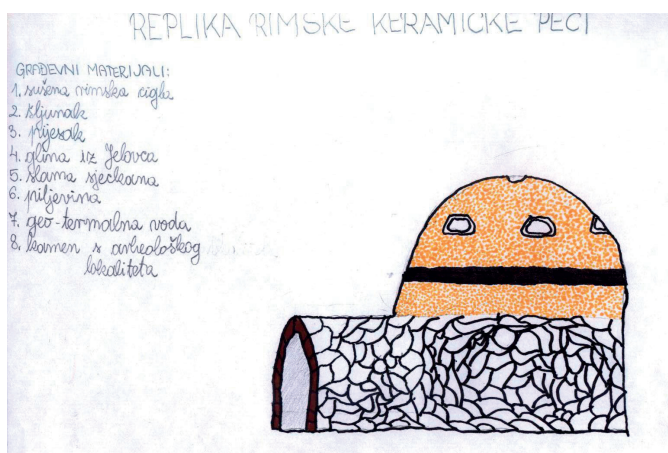 REPLIKA RIMSKE KERAMIČKE PEĆI
GRAĐEVNI MATERIJALI:
1. sušena rimska cigla
2. šljunak
3. pijesak
4. glina iz Jelovca
5. slama sjeckana
6. piljevina
7. geo-termalna voda
8. kamen s arheološkog
lokaliteta